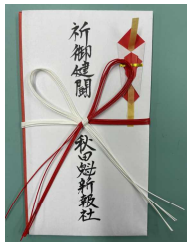 祈御健闘
秋田魁新報社